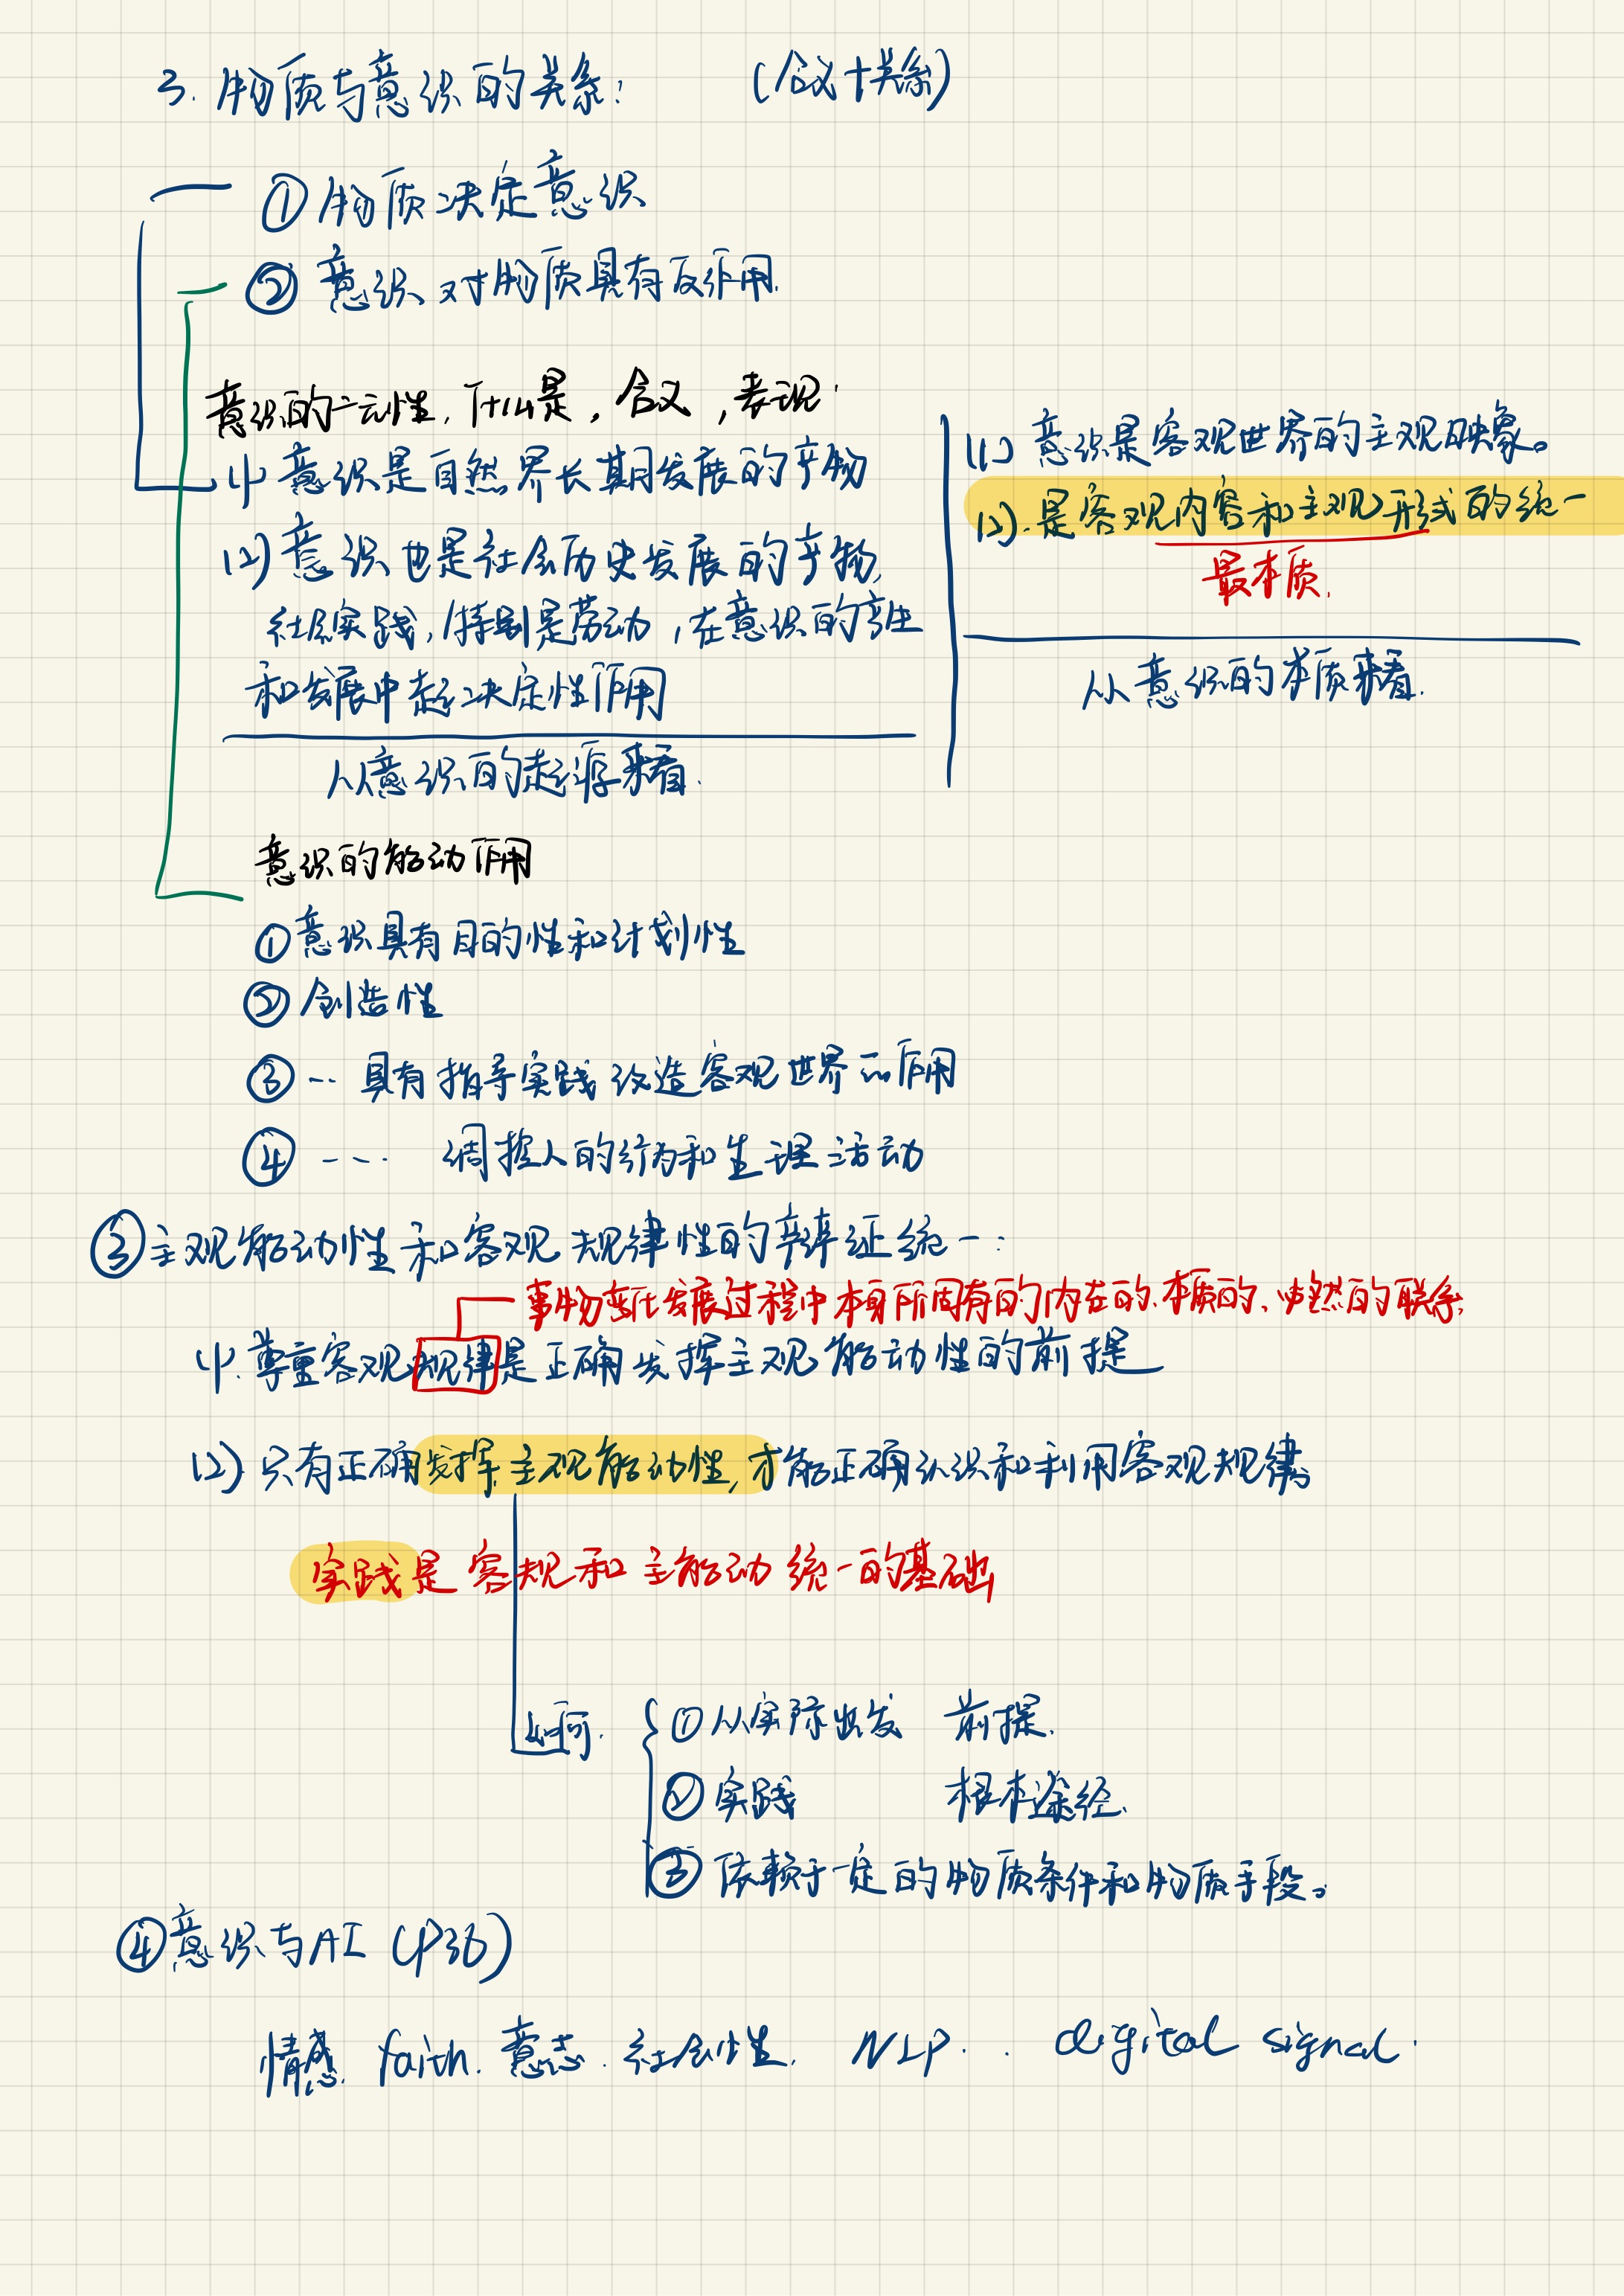 3. 物质与意识的关系: (含义+关系)
① 物质决定意识
② 意识对物质具有反作用.
意识的 性, 什么是, 含义, 表现:
(1) 意识是自然界长期发展的产物
(2) 意识也是社会历史发展的产物,
社会实践, 特别是劳动, 在意识的产生
和发展中起决定性作用
从意识的起源来看.
(1) 意识是客观世界的主观映象。
(2). 是客观内容和主观形式的统一
最本质.
从意识的本质来看.
意识的能动作用
① 意识具有目的性和计划性
② 创造性
③ … 具有指导实践改造客观世界的作用
④ …. 调控人的行为和生理活动
③ 主观能动性和客观规律性的辩证统一:
事物变化发展过程中本身所固有的内在的、本质的、必然的联系.
(1). 尊重客观规律是正确发挥主观能动性的前提
(2) 只有正确发挥主观能动性, 才能正确认识和利用客观规律
实践是客规和主能动统一的基础
如何.
① 从实际出发 前提.
② 实践 根本途径.
③ 依赖于一定的物质条件和物质手段。
④ 意识与AI (P36)
情感. faith. 意志. 社会性. NLP.. digital signal.